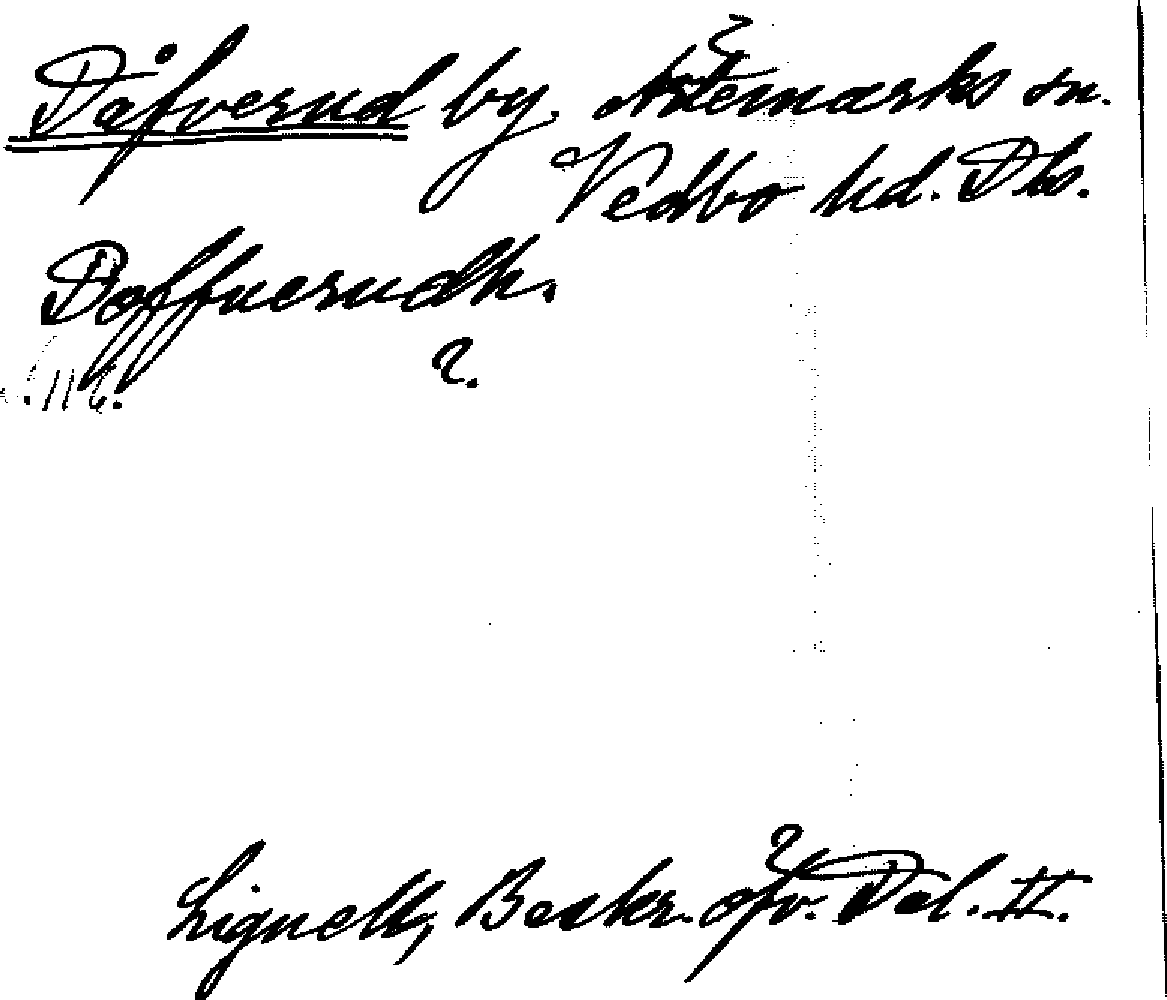 Dåfverud by. Ärtemarks sn.
Vedbo hd. Dls.
Doffuerudh.
2.
s. 116.
Lignell, Beskr. öfv. Dal. II.